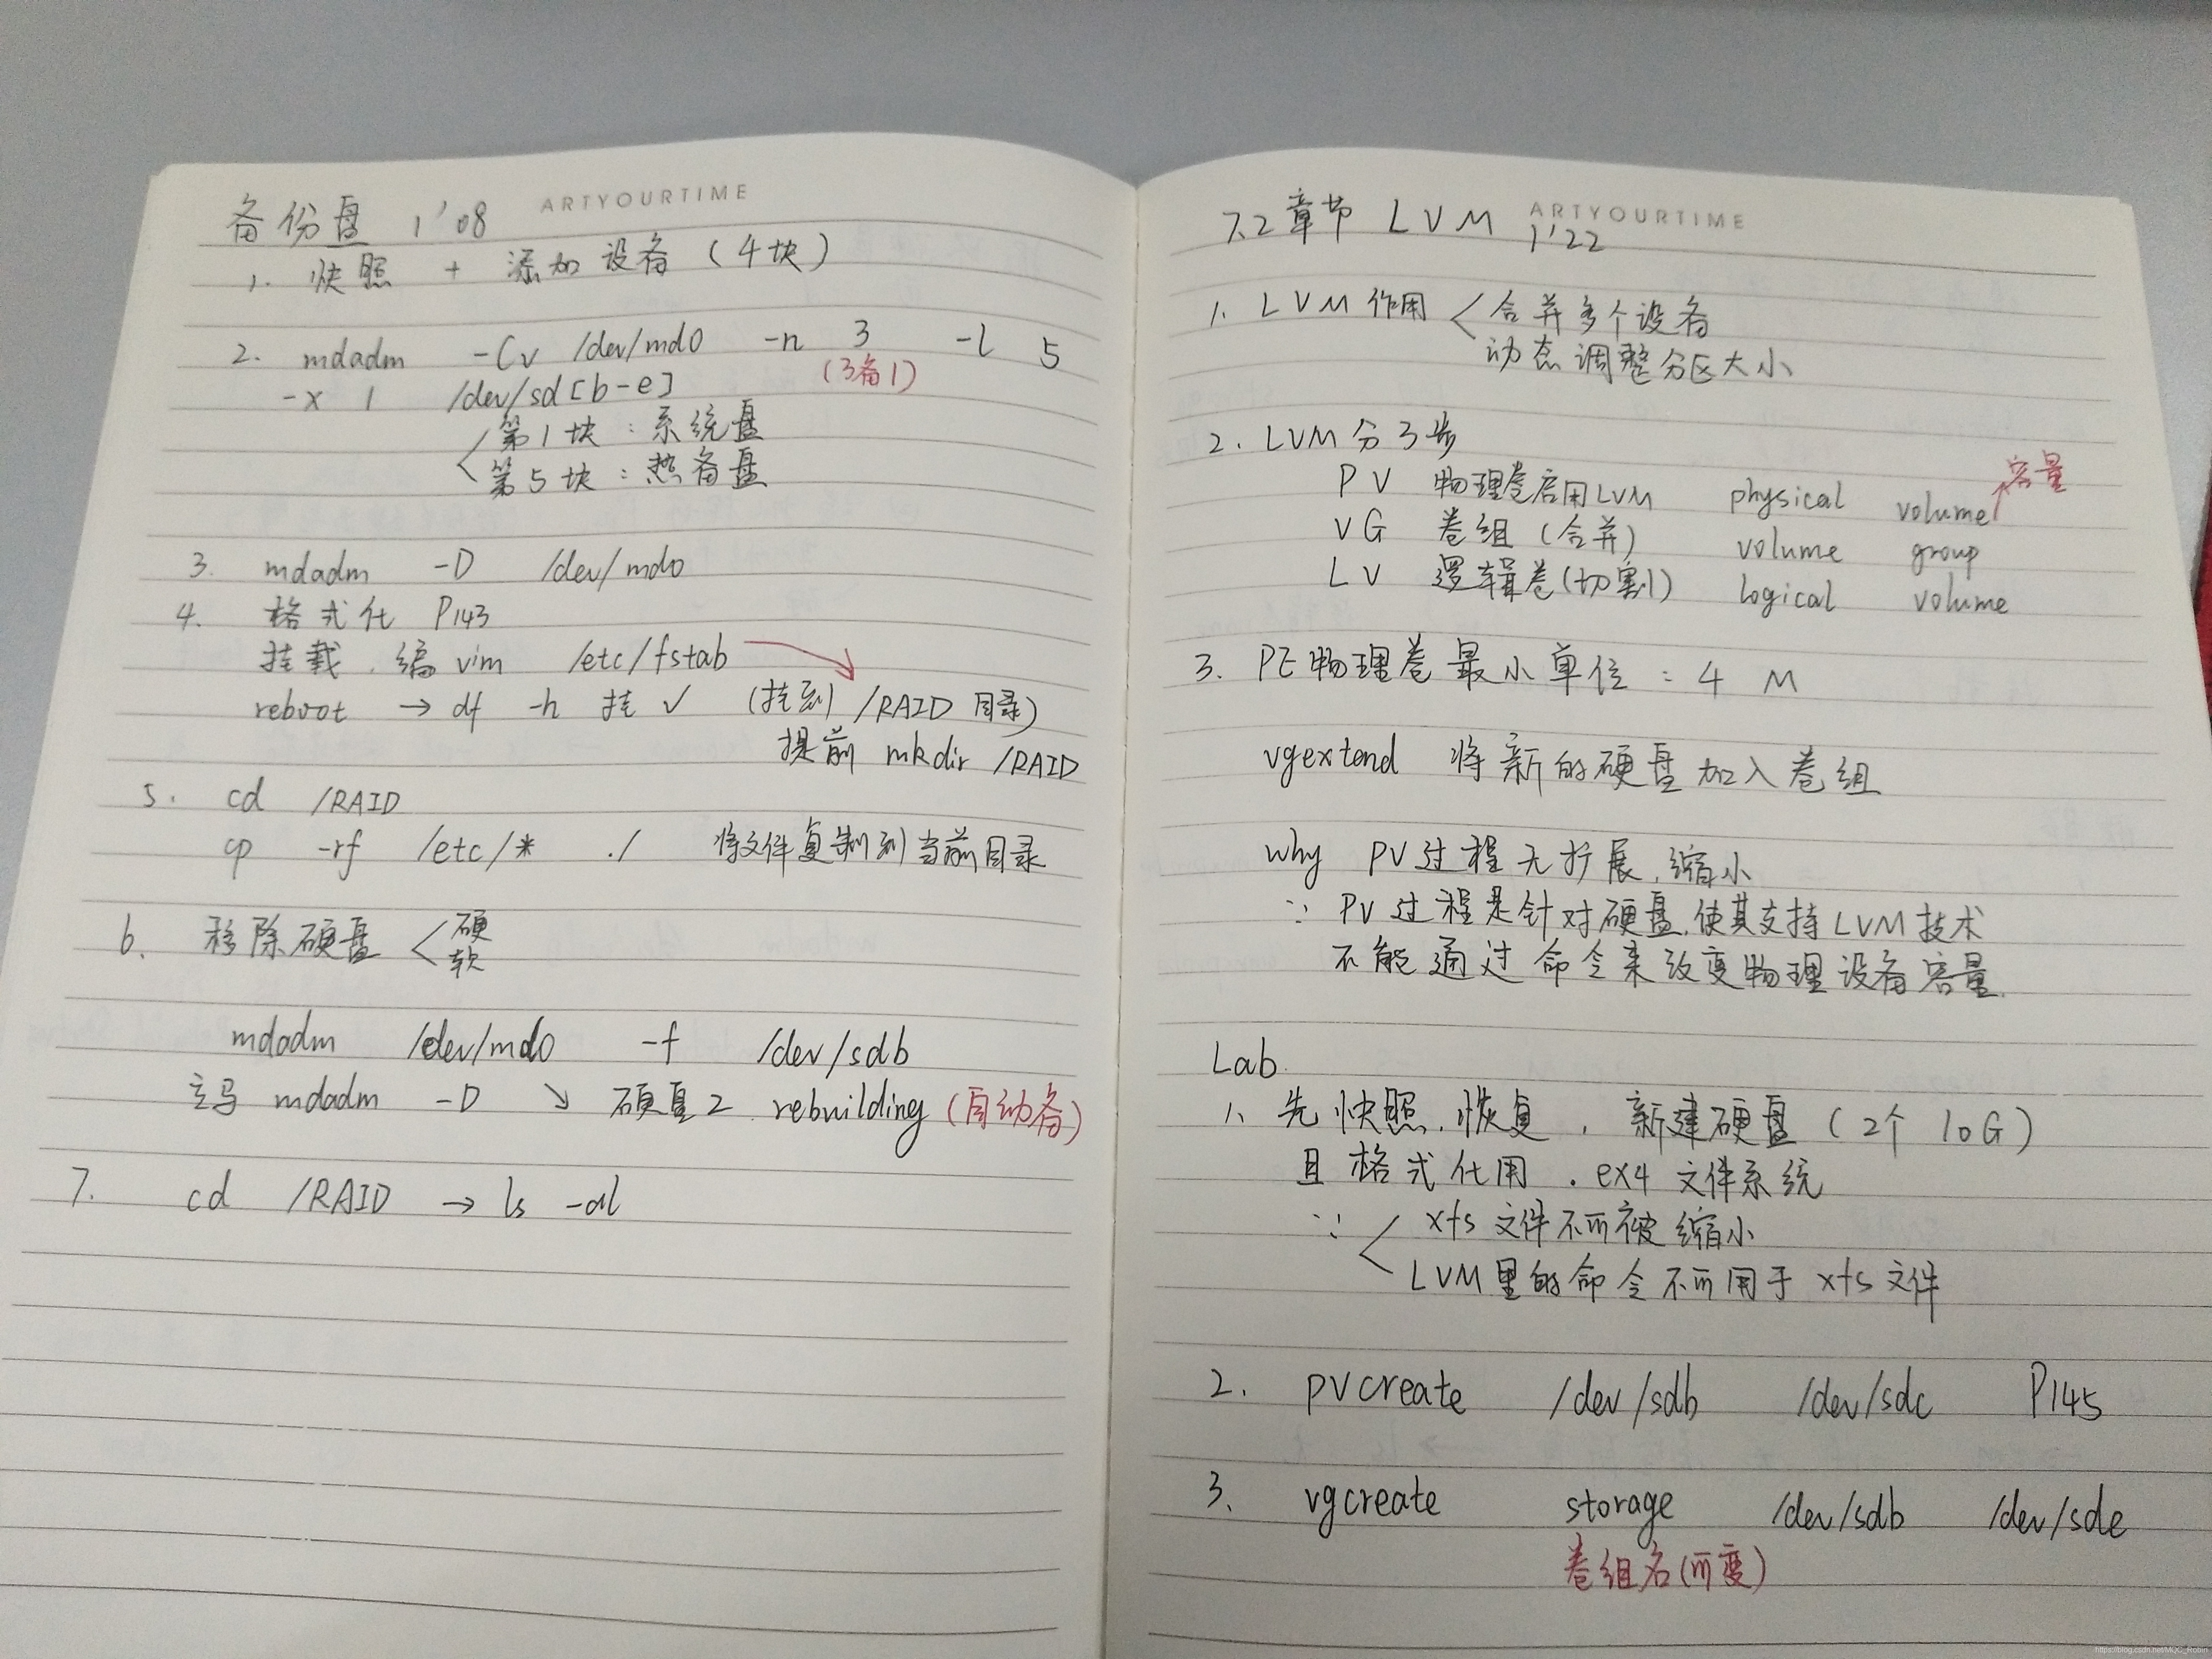 ARTYOURTIME
备份盘 1'08
1. 快照 + 添加设备 (4块)
2. mdadm -Cv /dev/md0 -n 3 -l 5
(3备1)
-x 1 /dev/sd[b-e]
第1块:系统盘
第5块:热备盘
3. mdadm -D /dev/md0
4. 格式化 P143
挂载.编 vim /etc/fstab
reboot → df -h 挂 ✓ (挂到 /RAID 目录)
提前 mkdir /RAID
5. cd /RAID
cp -rf /etc/* ./ 将文件复制到当前目录
6. 移除硬盘 < 硬
软
mdadm /dev/md0 -f /dev/sdb
立马 mdadm -D ↘ 硬盘2 rebuilding (自动备)
7. cd /RAID → ls -al
ARTYOURTIME
7.2章节 LVM 1'22
1. LVM 作用 < 合并多个设备
动态调整分区大小
2. LVM 分3步
容量
PV 物理卷启用LVM physical volume
VG 卷组 (合并) volume group
LV 逻辑卷(切割) logical volume
3. PE物理卷最小单位:4 M
vgextend 将新的硬盘加入卷组
why PV过程无扩展.缩小
∵ PV过程是针对硬盘.使其支持LVM技术
不能通过命令来改变物理设备容量.
Lab
1. 先快照.恢复 . 新建硬盘 (2个 10G)
且格式化用 . ex4 文件系统
∵ < xfs 文件不可被缩小
LVM里的命令不可用于 xfs 文件
2. pvcreate /dev/sdb /dev/sdc P145
3. vgcreate storage /dev/sdb /dev/sde
卷组名(可变)
https://blog.csdn.net/MQC_Robin